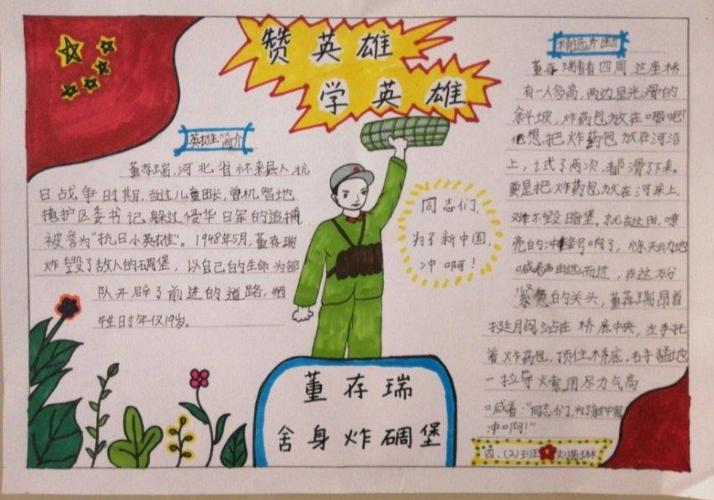 赞英雄
学英雄
英雄简介
董存瑞,河北省怀来县人,抗
日战争时期,当过儿童团长,曾机智地
掩护区委书记躲过侵华日军的追捕
被誉为"抗日小英雄"。1948年5月,董存瑞
炸毁了敌人的碉堡,以自己的生命为部
队开辟了前进的道路,牺
牲时年仅19岁。
同志们,
为了新中国,
冲啊!
董存瑞
舍身炸碉堡
精选片断
董存瑞看看四周,这座桥
有一人多高,两边是光滑的
斜坡,炸药包放在哪呢?
他想把炸药包放在河沿
上,试了两次,都滑了下来。
要是把炸药包放在河床上,
炸不毁暗堡。就在这时,嘹
亮的冲锋号响了,惊天动地
喊声由远而近,在这万分
紧急的关头,董存瑞昂首
挺胸站在桥底中央,左手托
着炸药包,顶住桥底,右手猛地
一拉导火索,用尽力气高
喊着:"同志们,为了新中国
冲啊!"
四.(2)班